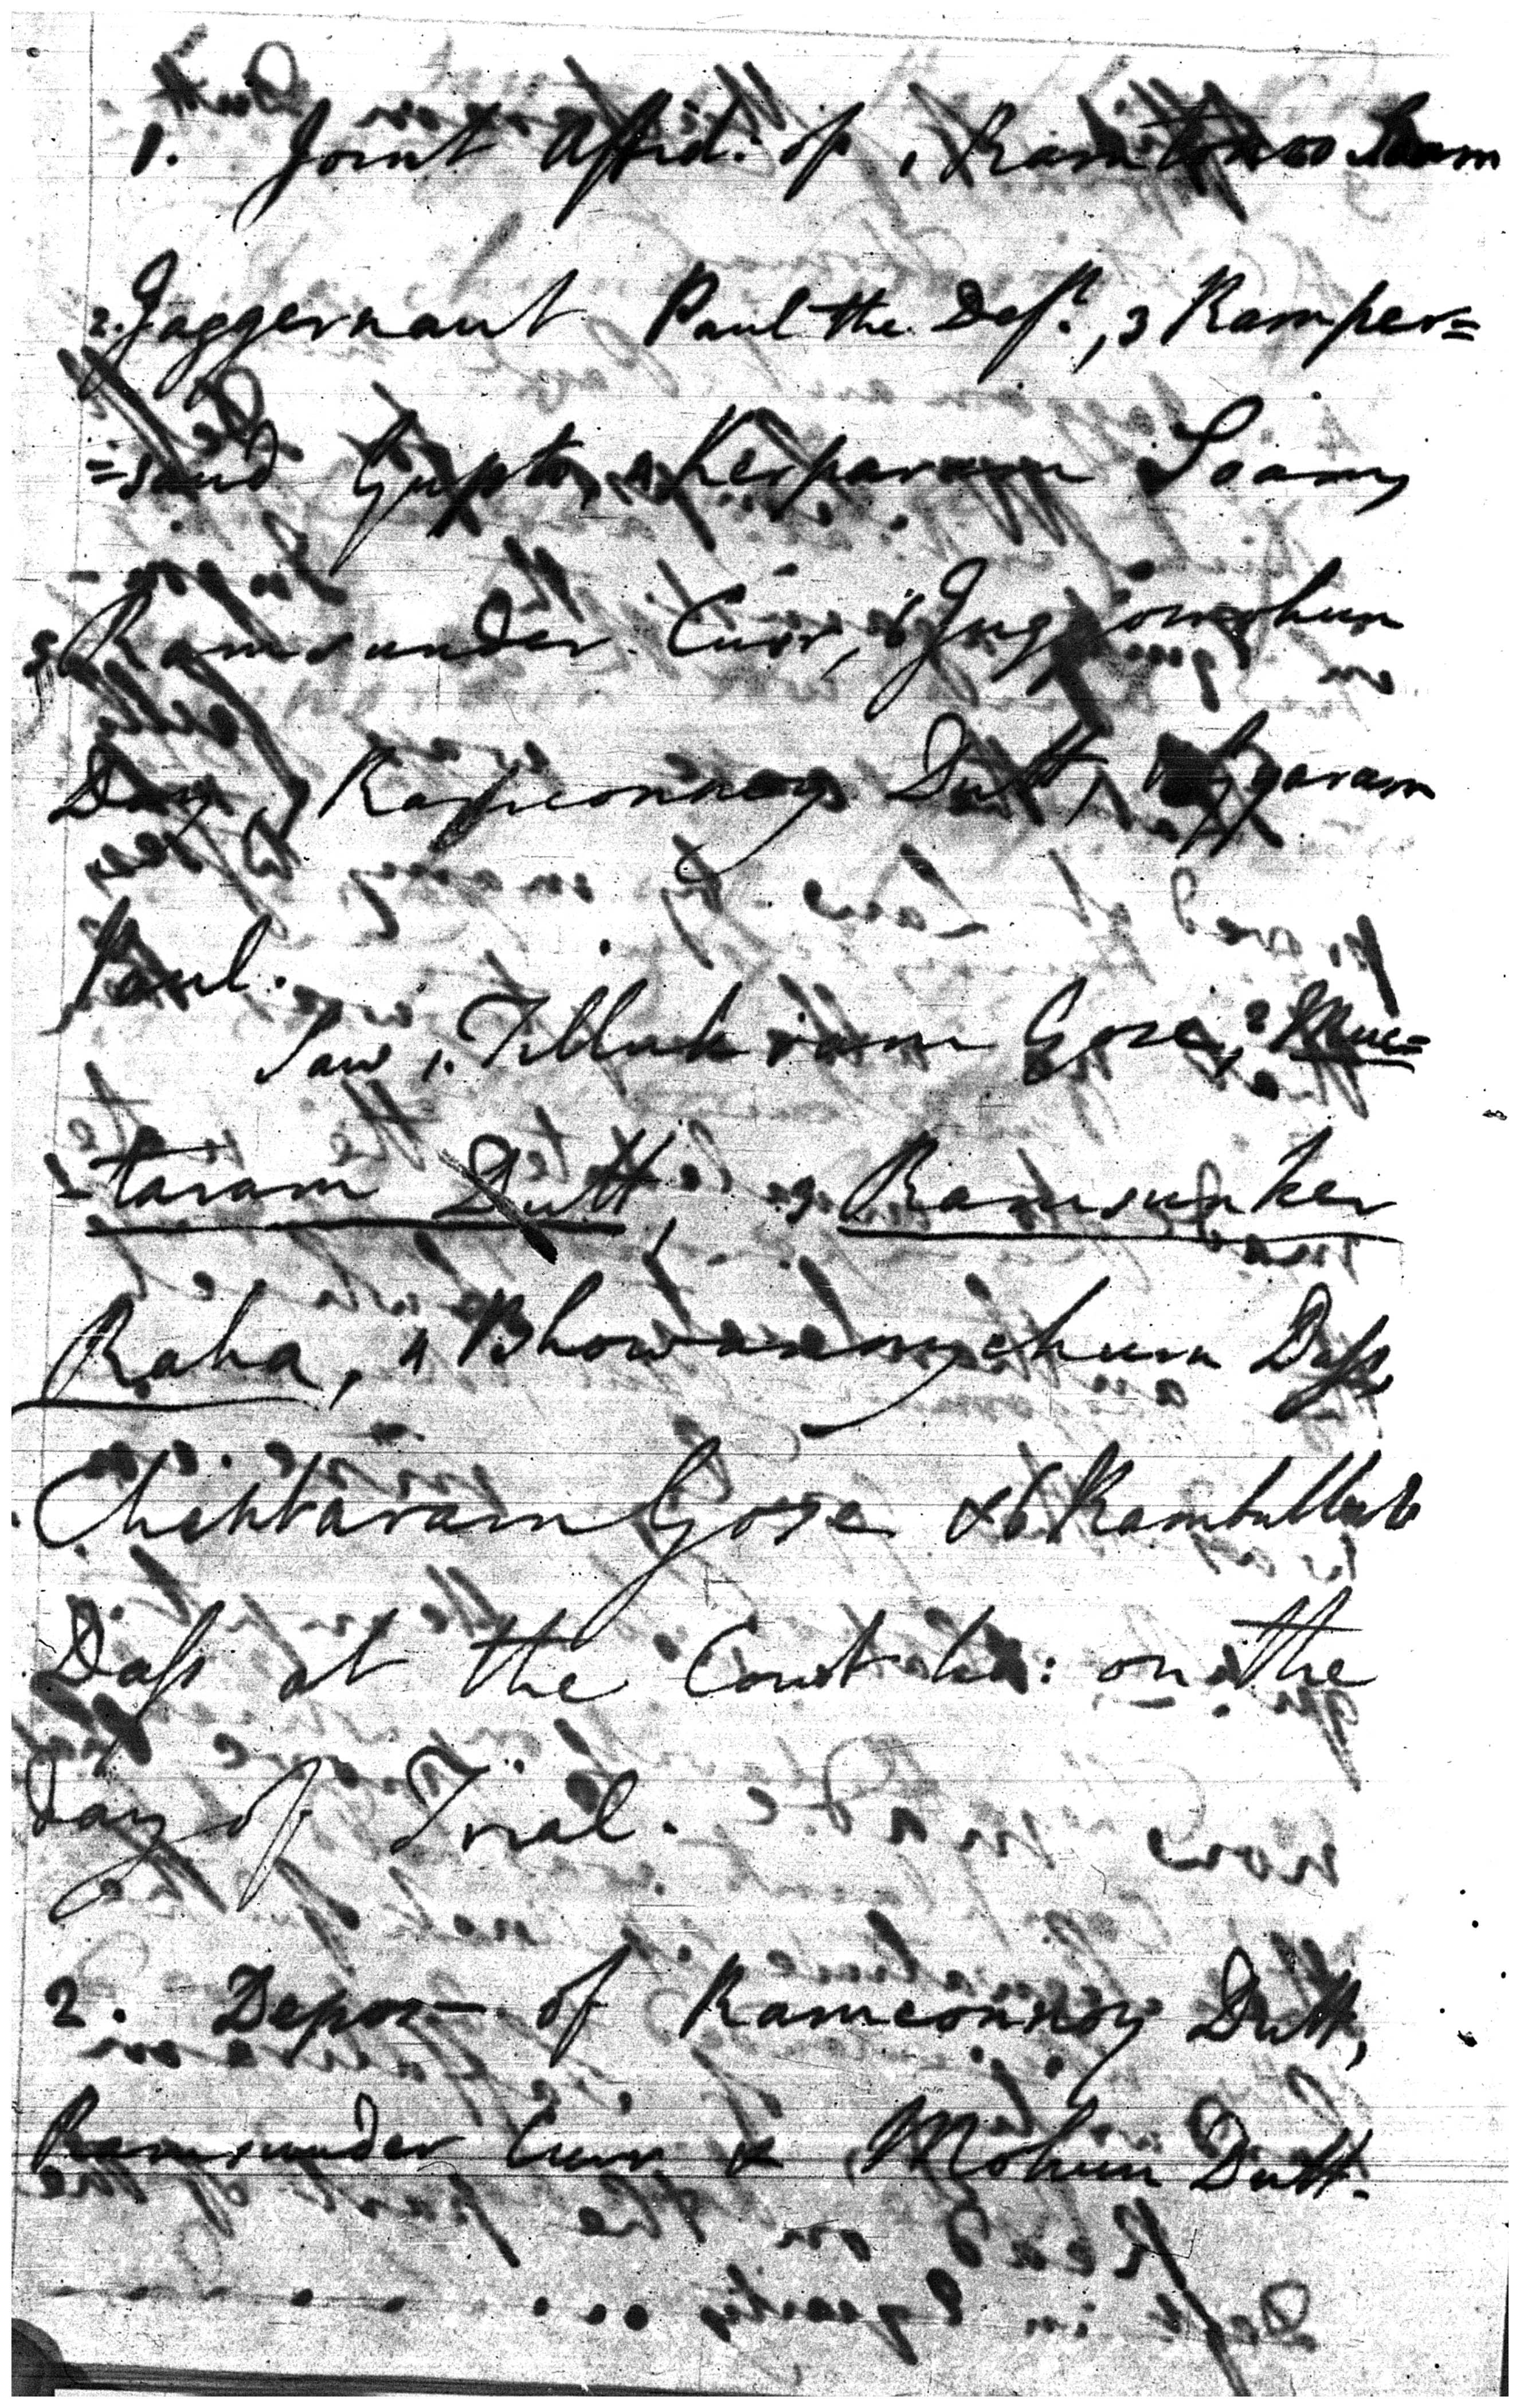 1. Joint Affid. of 1 Ramtonoo Soam
2. Jaggernaut Paul the Deft., 3 Ramper=
=saud Gupto, 4 Kerparam Soam,
5 Ramsunder Curr, 6 Juggomohun
Day, Ramconnoy Dutt,
Paul.
Saw 1. Tilluckram Gose, 2 Muc=
=taram Dutt, 3 Ramsunker
Raha, 4 Bhowanychurn Dass
Gose & 6 Rambullub
Dass at the Court ho: on the
day of Trial.
2. Depos of Ramconnoy Dutt,
Ramsunder Curr & Mohun Dutt.